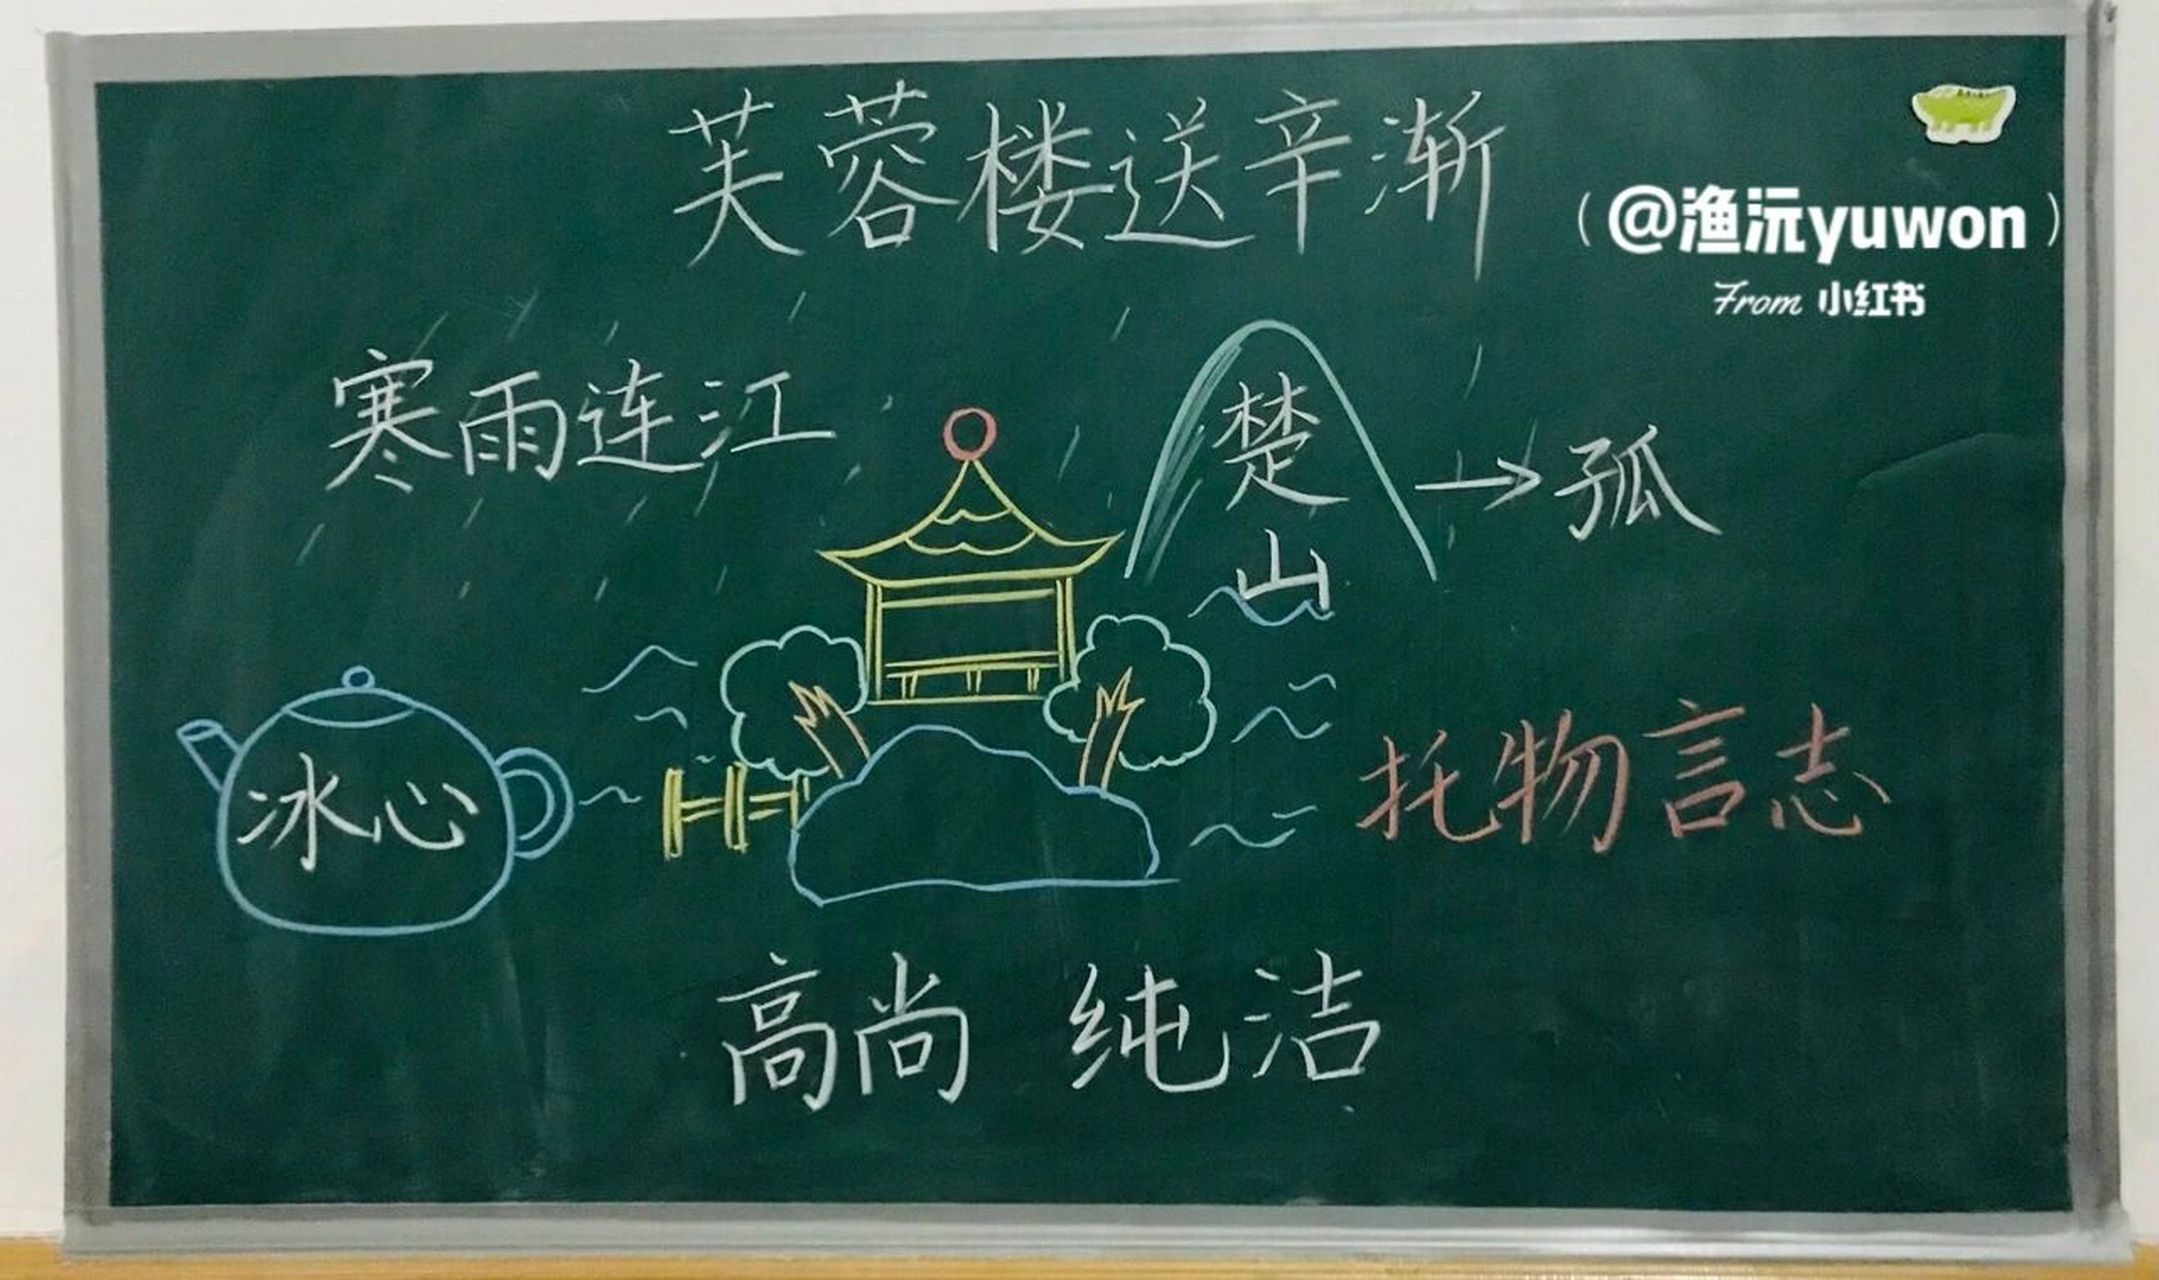 芙蓉楼送辛渐
(@渔沅yuwon)
From 小红书
寒雨连江
楚山→孤
冰心
托物言志
高尚 纯洁